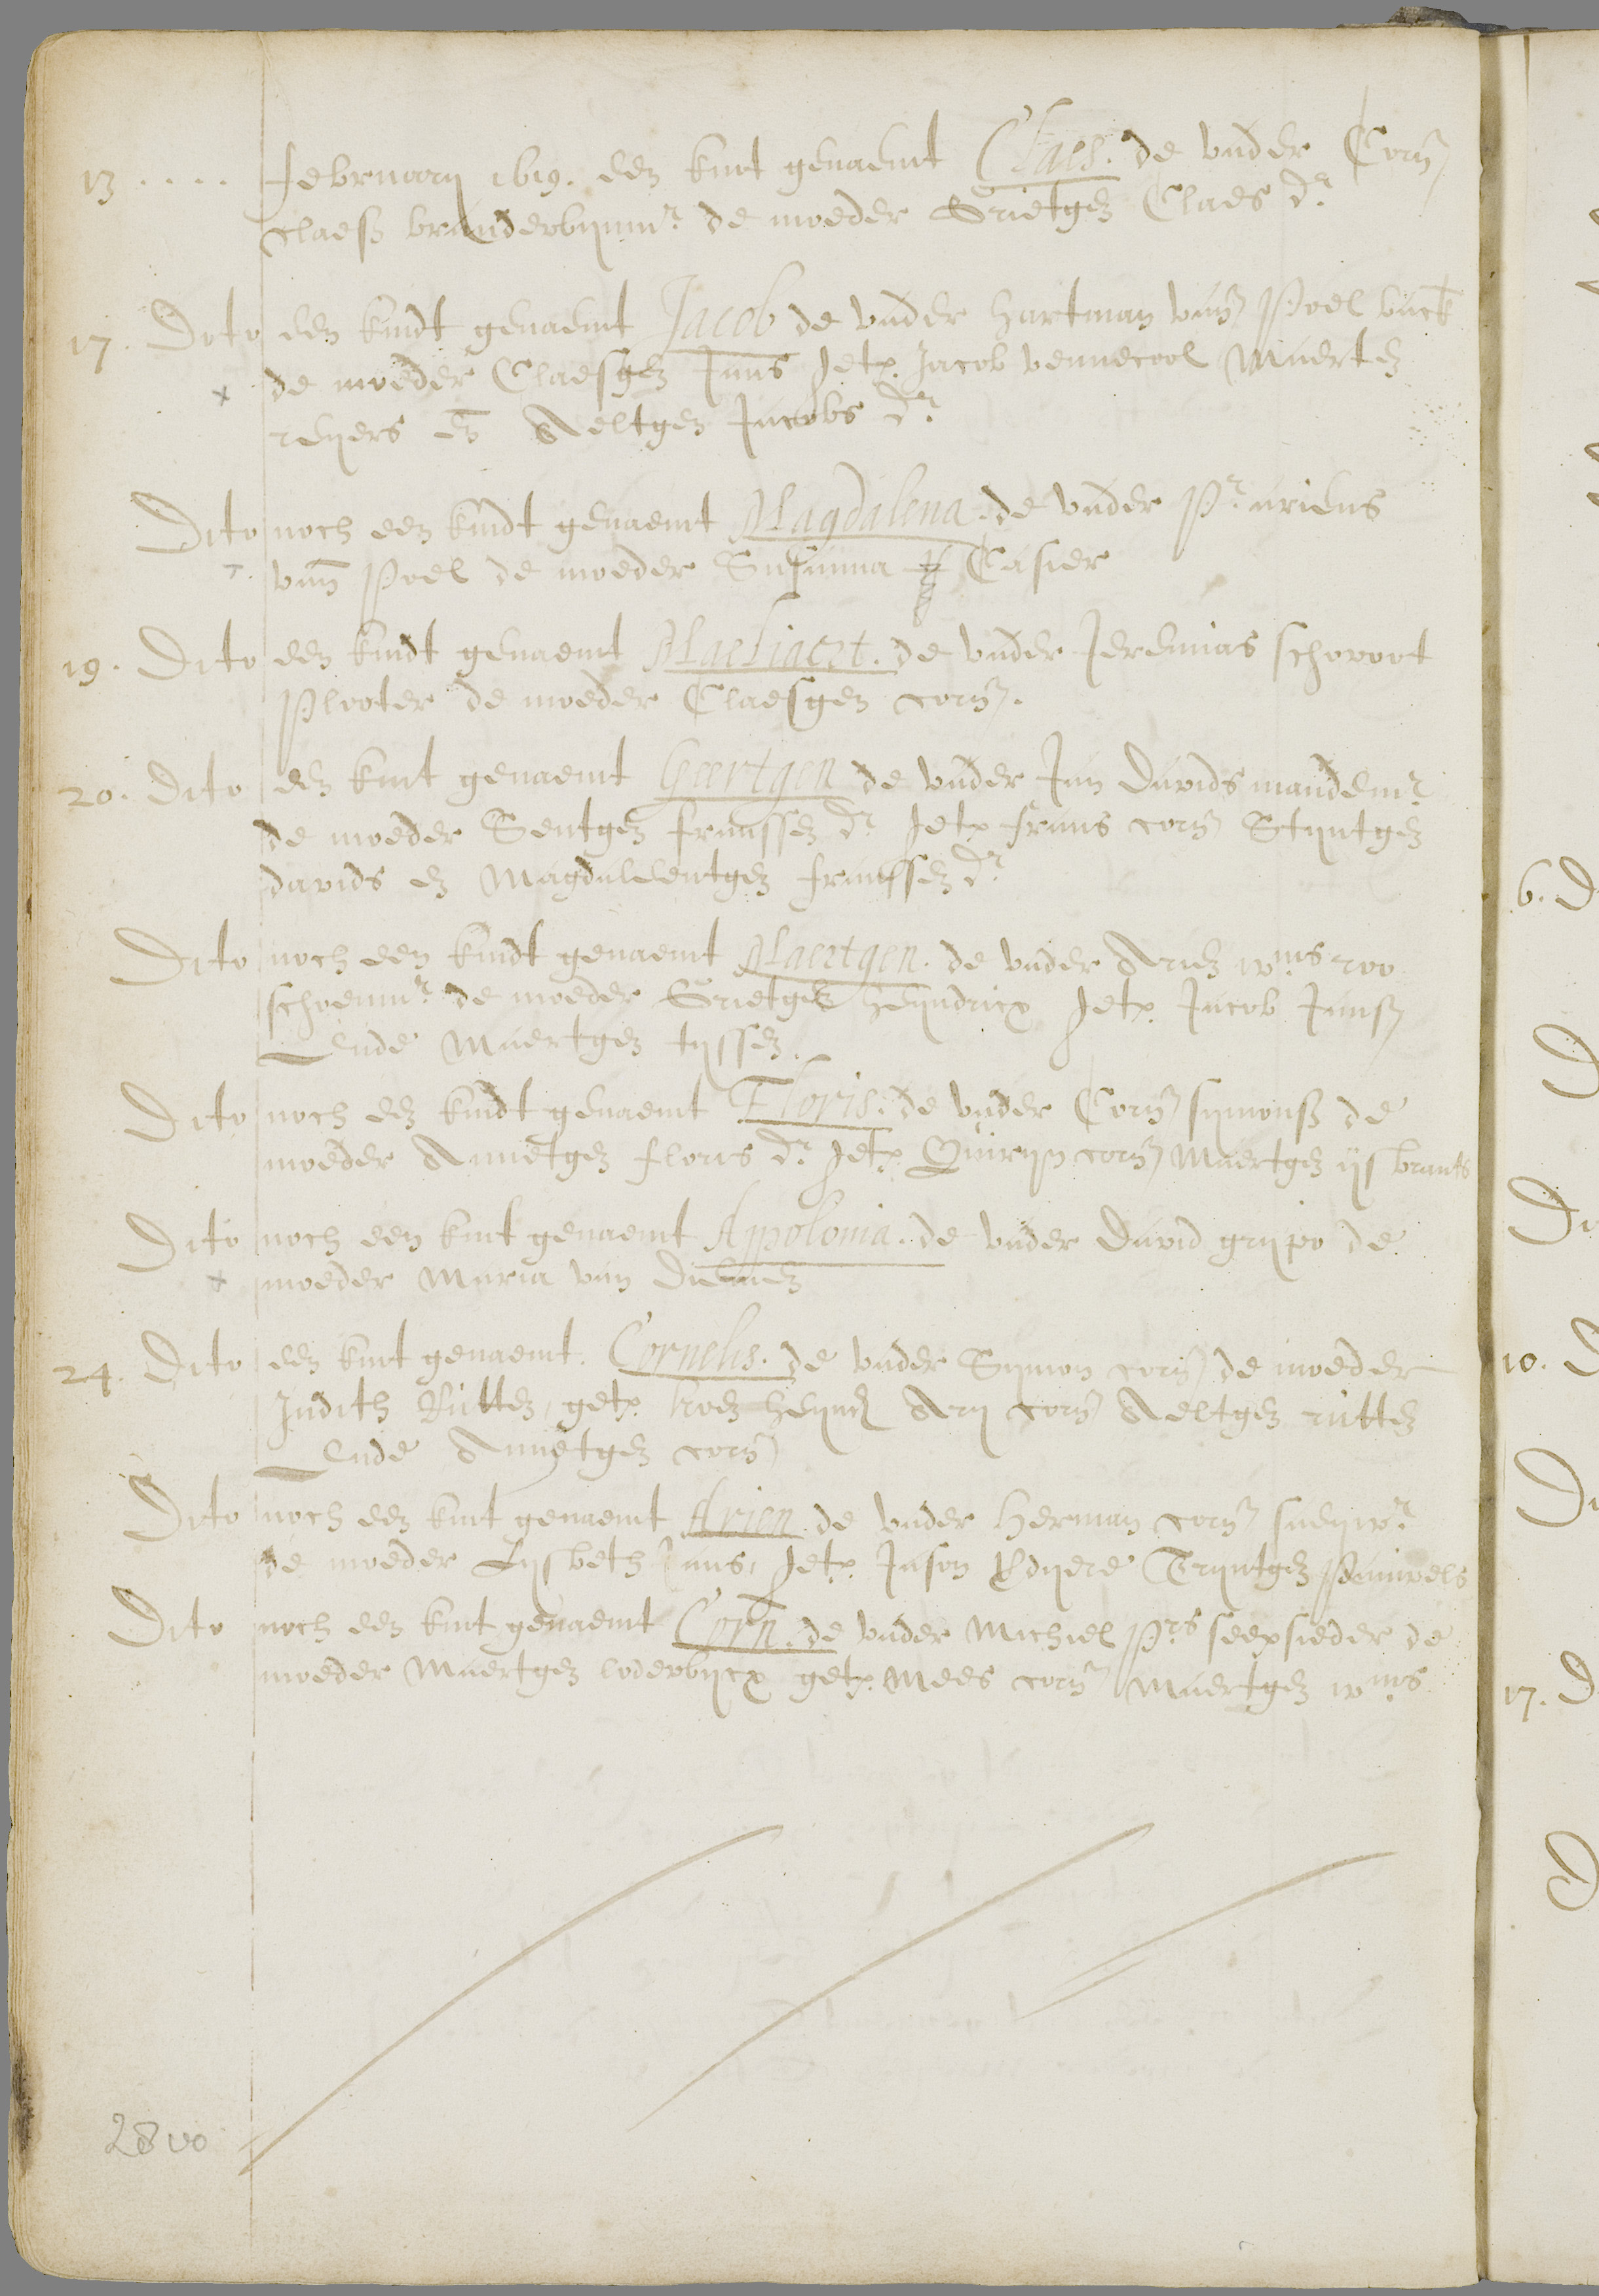 13 .... februarij 1619. een kint genaemt Claes. de vader Corn
claesz de moeder Grietgen Claes dr
17. Dito een kindt genaemt Jacob de vader hartman van Poel
x de moeder Claesgen Jans getx. Jacob vennecool Maerten
reijers en Aeltgen Jacobs dr
Dito noch een kindt genaemt Magdalena. de vader Pr. ariens
van Poel de moeder Susanna Casier
19. Dito een kindt genaemt de vader Jeremias
Plooter de moeder Claesgen corn.
20. Dito een kint genaemt Geertgen de vader Jan davids mandemr
de moeder Gentgen franssen dr getx frans corn Stijntgen
davids en Magdaleentgen franssen dr
Dito noch een kindt genaemt Maertgen. de vader Arien wms roo
schoenmr de moeder Grietgen heijndricx getx. Jacob Jansz
Ende Maertgen tijssen.
Dito noch een kindt genaemt Floris. de vader Corn sijmonsz de
moeder Annetgen floris dr getx. Quirijn corn Maertgen ijsbrants
Dito noch een kint genaemt Appolonia. de vader david grijpo de
x moeder Maria van diemen
24. Dito een kint genaemt. Cornelis. de vader Sijmon corn de moeder
Judith Rutten, getx. heijnd Arij corn Aeltgen rutten
Ende Annetgen corn
Dito noch een kint genaemt Arien de vader Herman corn
de moeder Lijsbeth Jans, getx. Jason Trijntgen Pauwels
Dito noch een kint genaemt Corn. de vader Michiel Prs seepsieder de
moeder Maertgen loderbijcx getx. Mees corn Maertgen wms
28 vo
6. D
D
Di
10. D
Di
17. D
D